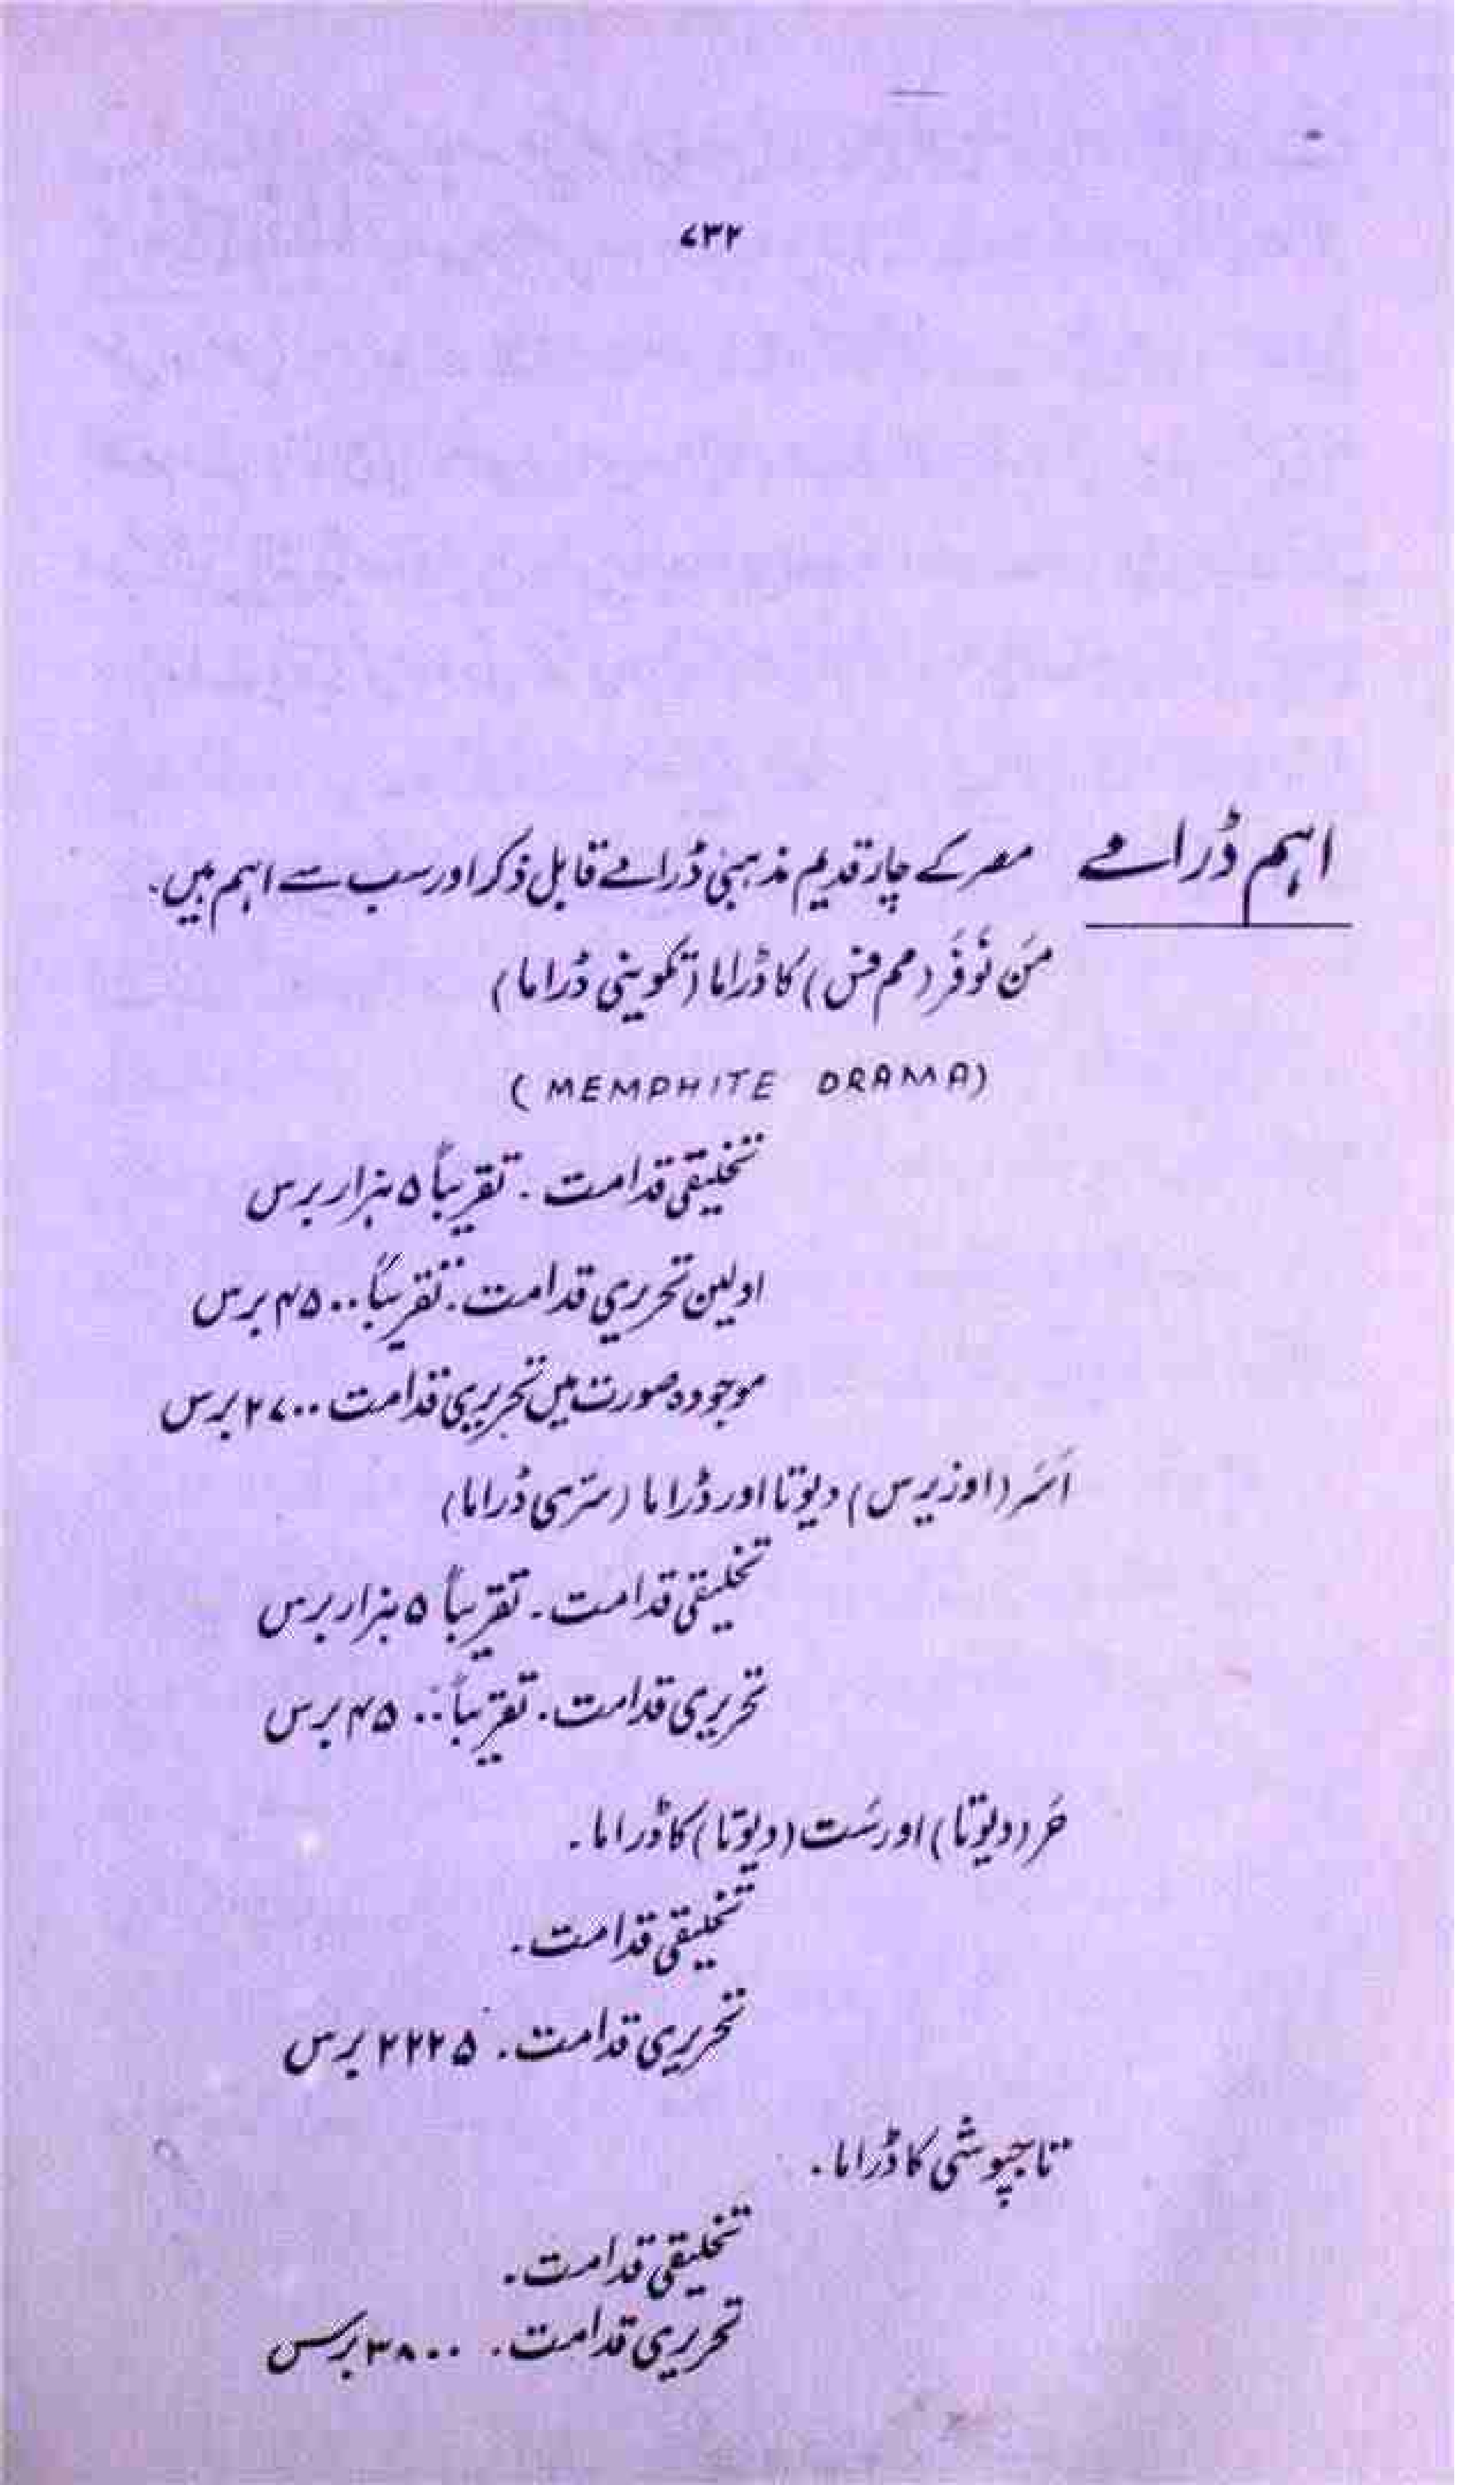 ۷۳۲
اہم ڈرامے مصر کے چار قدیم مذہبی ڈرامے قابل ذکر اور سب سے اہم ہیں۔
مَن نُوفَر (مم فس) کا ڈراما (تکوینی ڈراما)
(MEMPHITE DRAMA)
تخلیقی قدامت۔ تقریباً ۵ ہزار برس
اولین تحریری قدامت۔ تقریباً ۴۵۰۰ برس
موجودہ صورت میں تحریری قدامت ۲۷۰۰ برس
اَسَر (اوزیرس) دیوتا اور ڈراما (سرّی ڈراما)
تخلیقی قدامت۔ تقریباً ۵ ہزار برس
تحریری قدامت۔ تقریباً ۴۵۰۰ برس
حَر (دیوتا) اور سَت (دیوتا) کا ڈراما۔
تخلیقی قدامت۔
تحریری قدامت۔ ۲۲۲۵ برس
تاجپوشی کا ڈراما۔
تخلیقی قدامت۔
تحریری قدامت۔ ۳۸۰۰ برس